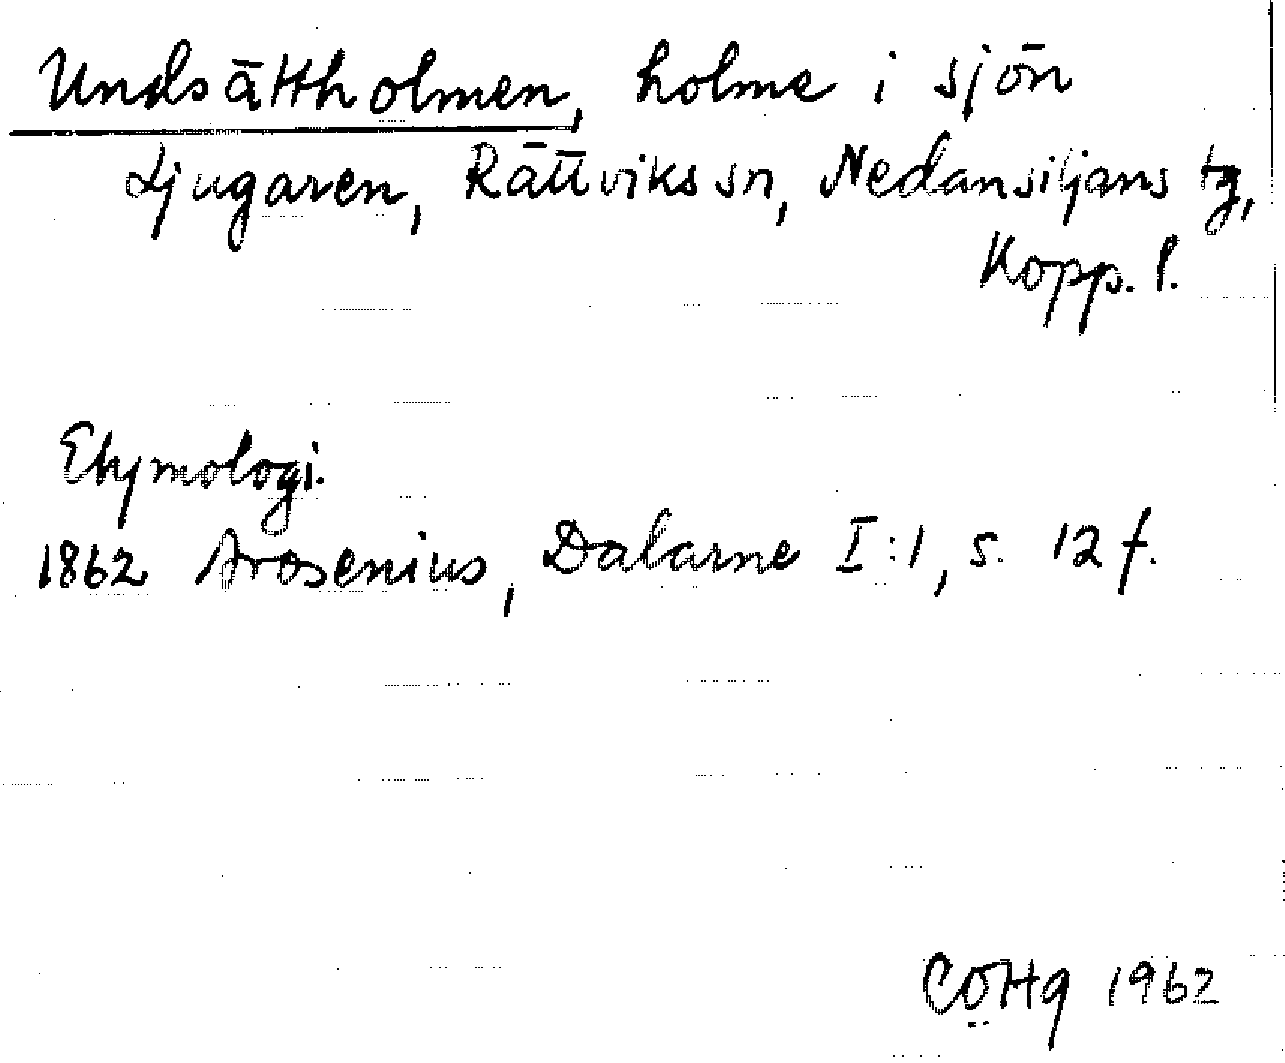 Undsättholmen, holme i sjön
Ljugaren, Rättviks sn, Nedansiljans tg,
Kopp. l.
Etymologi.
1862 Arosenius, Dalarne I:1, s. 12 f.
COHg 1962